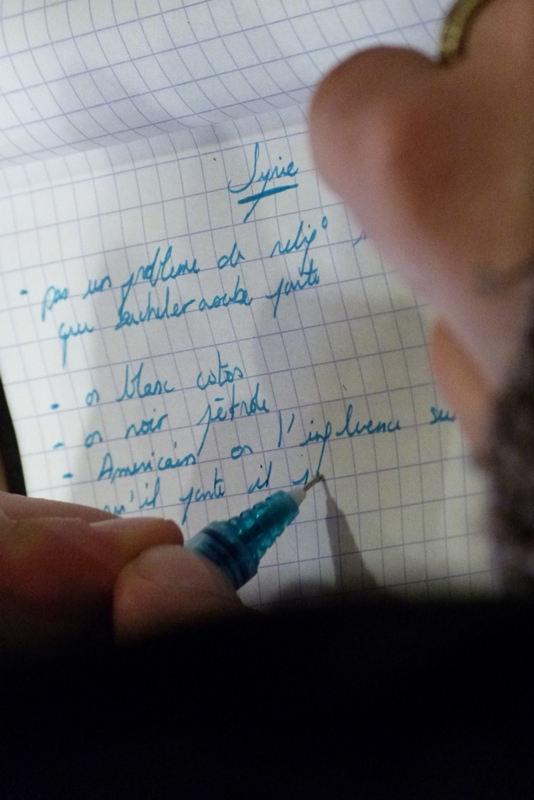 Syrie
- pas un problème de relig°
que bachelar aouba porte
- or blanc coton
- or noir pétrole
- Americain on l'influence su
qu'il porte il